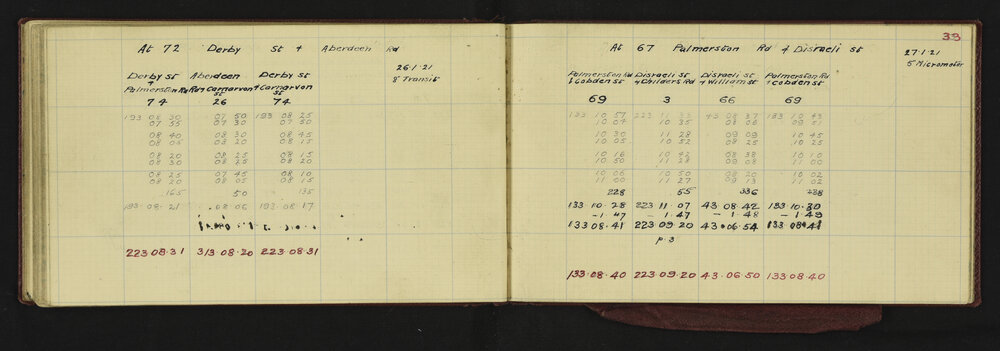 At 72 Derby St & Aberdeen Rd
26·1·21
8" Transit
Derby St Aberdeen Derby St
& Palmerston Rd Rd & Carnarvon St & Carnarvon St
74 26 74
193 08 30 07 50 193 08 25
07 55 07 30 07 50
08 40 08 30 08 45
08 05 08 20 08 15
08 20 08 25 08 15
08 30 08 25 08 20
08 25 07 45 08 10
08 20 08 05 08 15
165 50 135
193·08·21 ·08·06 193·08·17
223·08·31 313·08·20 223·08·31
33
At 67 Palmerston Rd & Disraeli St
27·1·21
5" Micrometer
Palmerston Rd Disraeli St Disraeli St Palmerston Rd
& Cobden St & Childers Rd & William St & Cobden St
69 3 66 69
133 10 57 223 11 33 43 08 37 133 10 43
10 04 10 35 08 06 09 51
10 30 11 28 09 09 10 45
10 05 10 52 08 25 10 25
10 16 10 42 08 38 10 10
10 50 11 28 09 08 11 00
10 06 10 50 08 20 10 02
11 00 11 27 09 13 11 02
228 55 336 238
133·10·28 223 11·07 43·08·42 133·10·30
-1 47 -1 47 -1 48 -1 49
133 08·41 223·09·20 43·06·54 133·08·41
p. 3
133·08·40 223·09·20 43·06·50 133·08·40